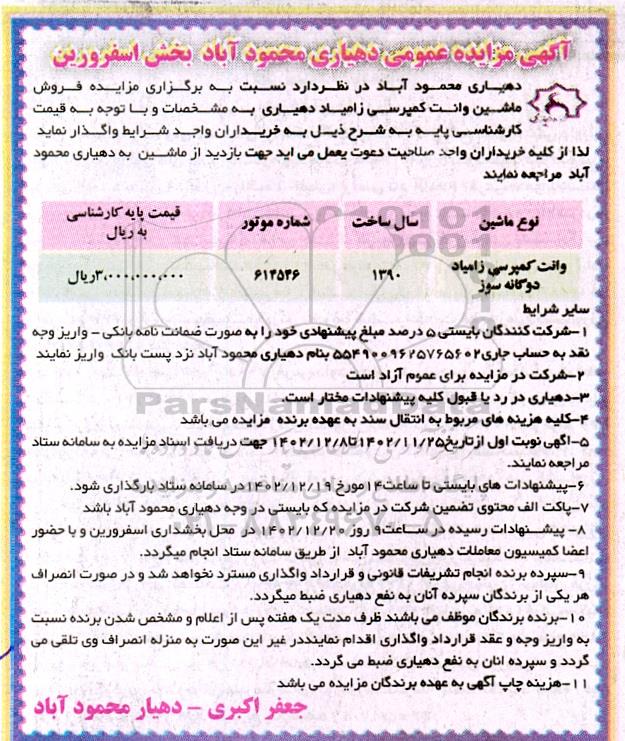 آگهی مزایده عمومی دهیاری محمود آباد بخش اسفرورین
دهیاری محمود آباد در نظردارد نسبت به برگزاری مزایده فروش
ماشین وانت کمپرسی زامیاد دهیاری به مشخصات و با توجه به قیمت
کارشناسی پایه به شرح ذیل به خریداران واجد شرایط واگذار نماید
لذا از کلیه خریداران واجد صلاحیت دعوت بعمل می اید جهت بازدید از ماشین به دهیاری محمود
آباد مراجعه نمایند
نوع ماشین سال ساخت شماره موتور قیمت پایه کارشناسی
به ریال
وانت کمپرسی زامیاد
دوگانه سوز ۱۳۹۰ ۶۱۴۵۴۶ ۳،۰۰۰،۰۰۰،۰۰۰ریال
سایر شرایط
۱-شرکت کنندگان بایستی ۵ درصد مبلغ پیشنهادی خود را به صورت ضمانت نامه بانکی – واریز وجه
نقد به حساب جاری۵۵۴۹۰۰۹۶۲۵۷۶۵۶۰۲ بنام دهیاری محمود آباد نزد پست بانک واریز نمایند
۲-شرکت در مزایده برای عموم آزاد است
۳-دهیاری در رد یا قبول کلیه پیشنهادات مختار است.
۴-کلیه هزینه های مربوط به انتقال سند به عهده برنده مزایده می باشد
۵-اگهی نوبت اول ازتاریخ۱۴۰۲/۱۱/۲۵تا۱۴۰۲/۱۲/۸ جهت دریافت اسناد مزایده به سامانه ستاد
مراجعه نمایند.
۶-پیشنهادات های بایستی تا ساعت۱۴مورخ ۱۴۰۲/۱۲/۱۹در سامانه ستاد بارگذاری شود.
۷-پاکت الف محتوی تضمین شرکت در مزایده که بایستی در وجه دهیاری محمود آباد باشد
۸- پیشنهادات رسیده در ساعت۹ روز ۱۴۰۲/۱۲/۲۰ در محل بخشداری اسفرورین و با حضور
اعضا کمیسیون معاملات دهیاری محمود آباد از طریق سامانه ستاد انجام میگردد.
۹-سپرده برنده انجام تشریفات قانونی و قرارداد واگذاری مسترد نخواهد شد و در صورت انصراف
هر یکی از برندگان سپرده آنان به نفع دهیاری ضبط میگردد.
۱۰-برنده برندگان موظف می باشند ظرف مدت یک هفته پس از اعلام و مشخص شدن برنده نسبت
به واریز وجه و عقد قرارداد واگذاری اقدام نماینددر غیر این صورت به منزله انصراف وی تلقی می
گردد و سپرده انان به نفع دهیاری ضبط می گردد.
۱۱-هزینه چاپ آگهی به عهده برندگان مزایده می باشد
جعفر اکبری – دهیار محمود آباد
ParsNamadData